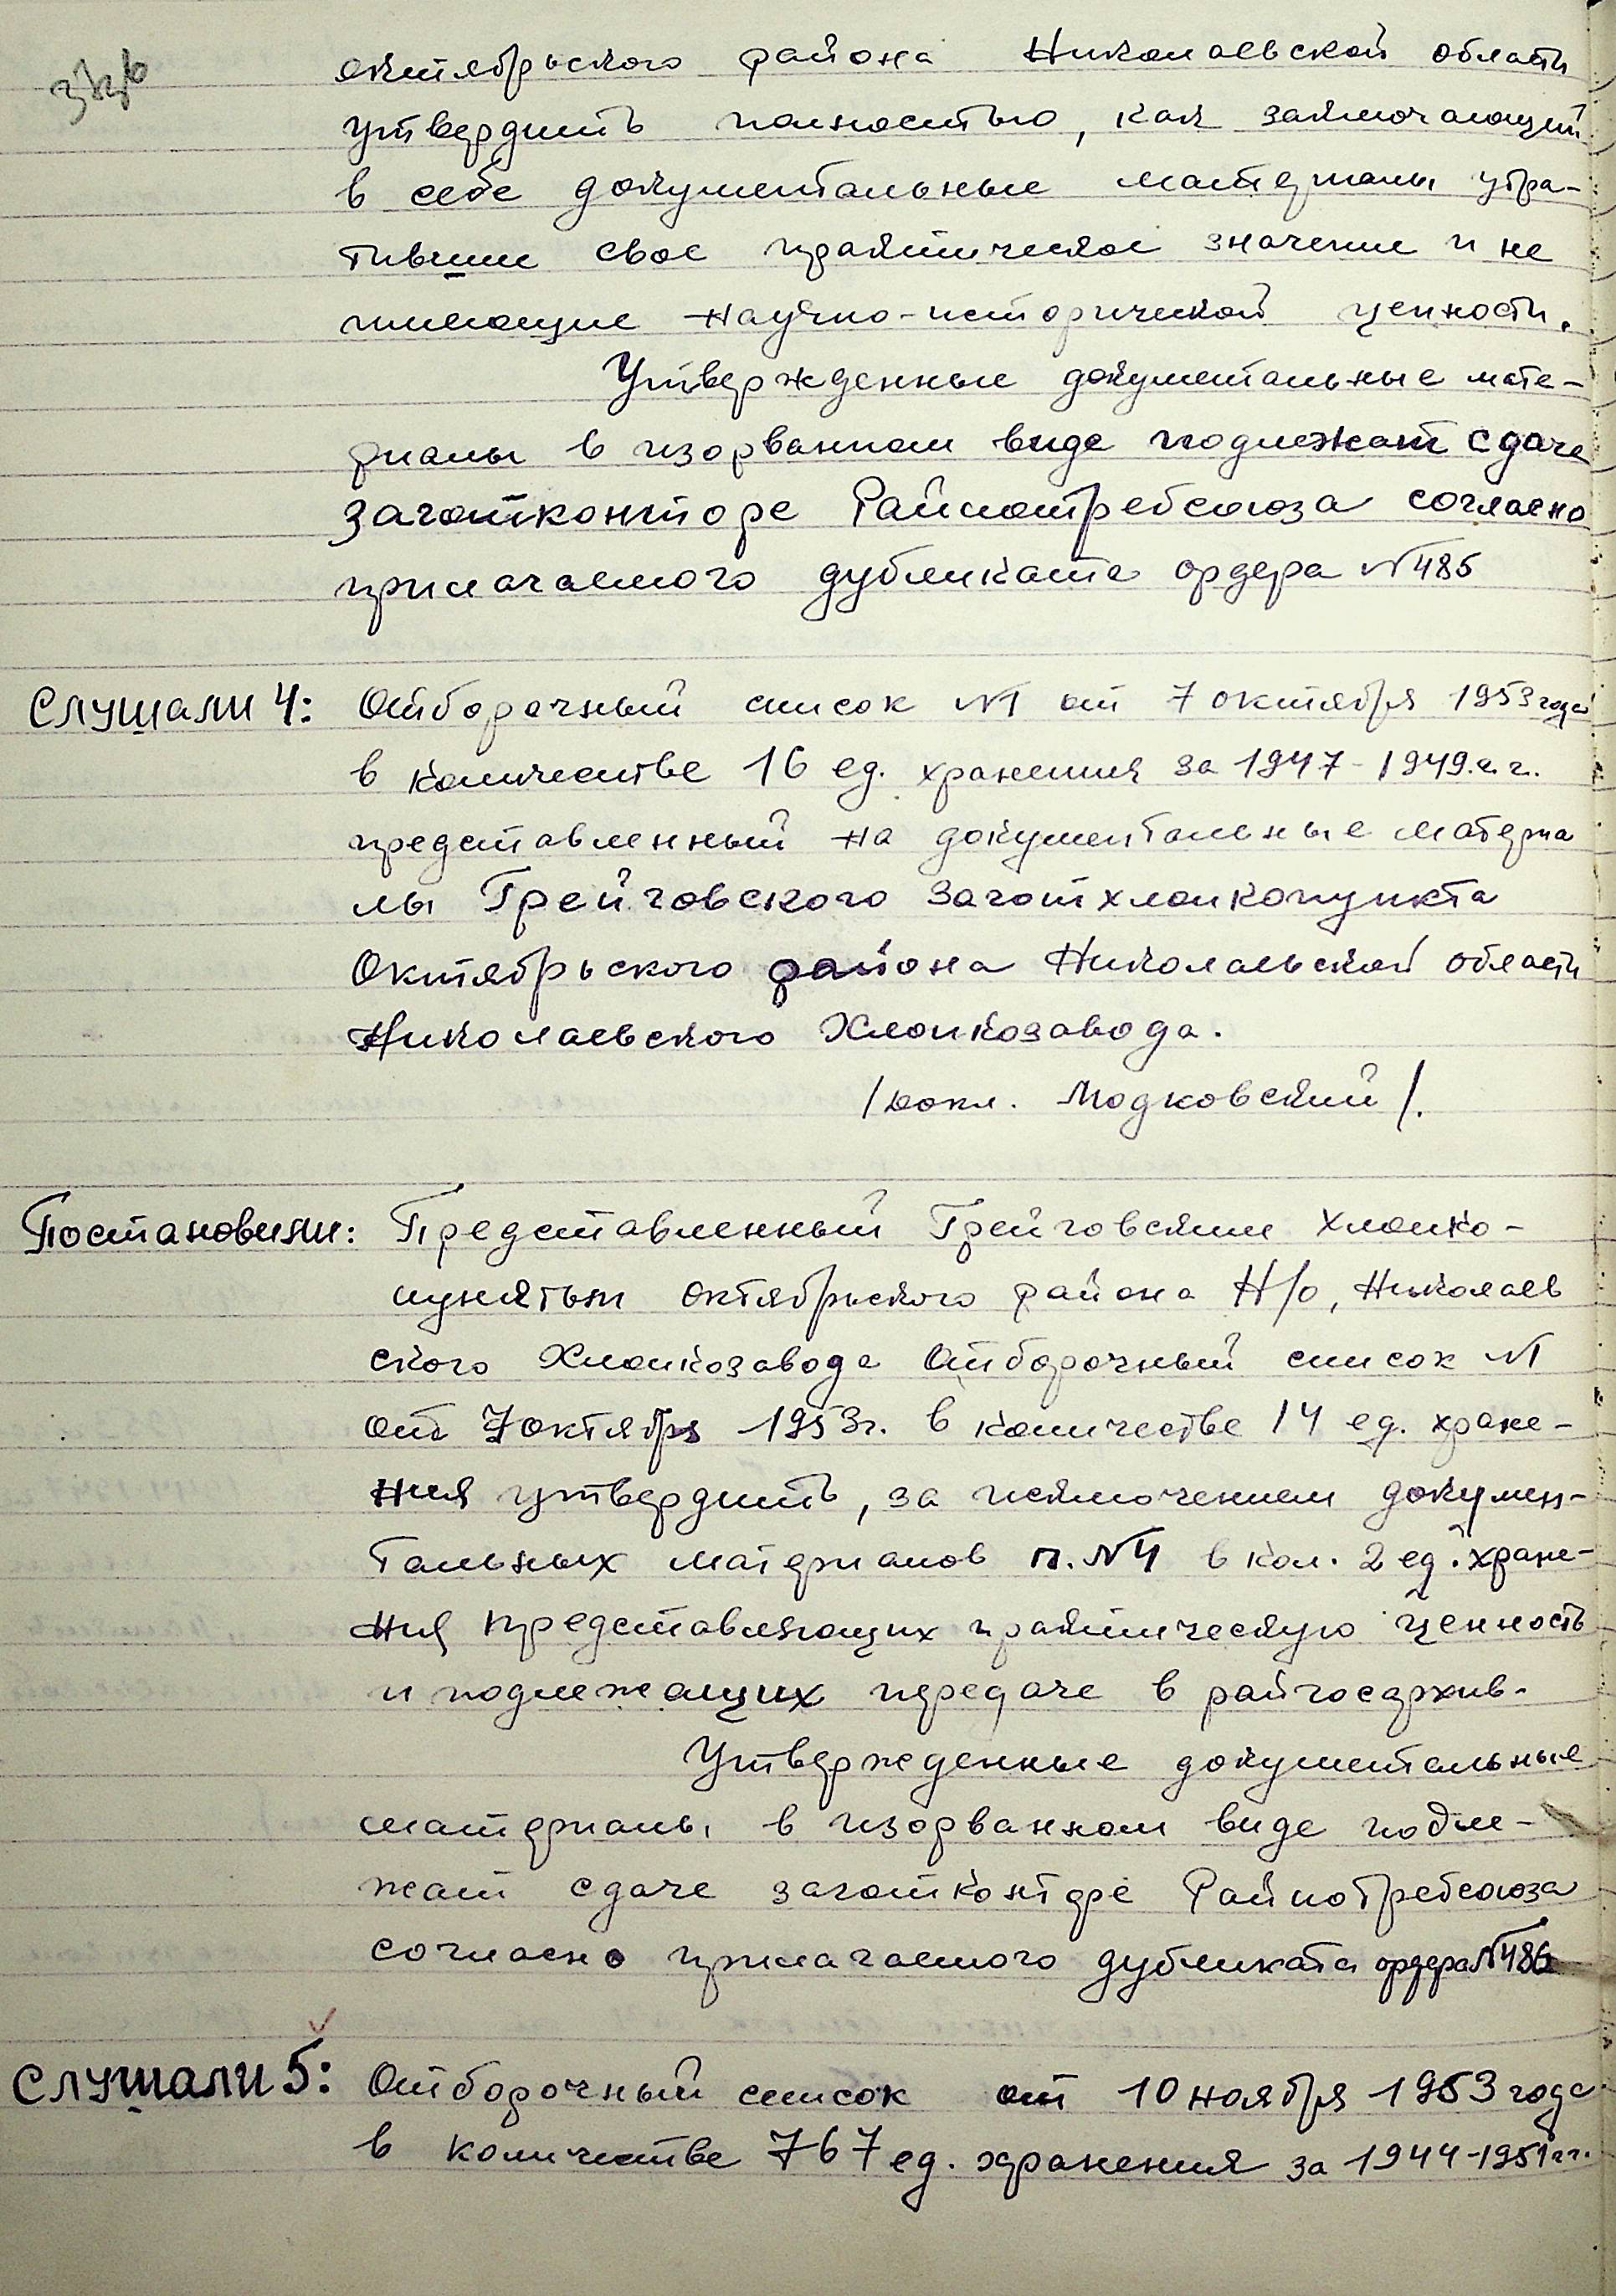 октябрьского района Николаевской области
утвердить полностью, как заключающий
в себе документальные материалы утра-
тившие свое практическое значение и не
имеющие научно-исторической ценности.
Утвержденные документальные мате-
риалы в изорванном виде подлежат сдаче
заготконторе Райпотребсоюза согласно
прилагаемого дубликата ордера №485
Слушали 4: Отборочный список №1 от 7 октября 1953 года
в количестве 16 ед. хранения за 1947-1949.г.г.
представленный на документальные материа
лы Грейговского Заготхлопкопункта
Октябрьского района Николаевской области
Николаевского Хлопкозавода.
/докл. Модковский/.
Постановили: Представленный Грейговским хлопко-
пунктом Октябрьского района Н/о, Николаев
ского Хлопкозавода Отборочный список №1
от 7 октября 1953г. в количестве 14 ед. хране-
ния утвердить, за исключением докумен-
тальных материалов п.№4 в кол. 2 ед. хране-
ния представляющих практическую ценность
и подлежащих передаче в райгосархив.
Утвержденные документальные
материалы в изорванном виде подле-
жат сдаче заготконторе Райпотребсоюза
согласно прилагаемого дубликата ордера №486
Слушали 5: Отборочный список от 10 ноября 1953 года
в количестве 767 ед. хранения за 1944-1951 г.г.